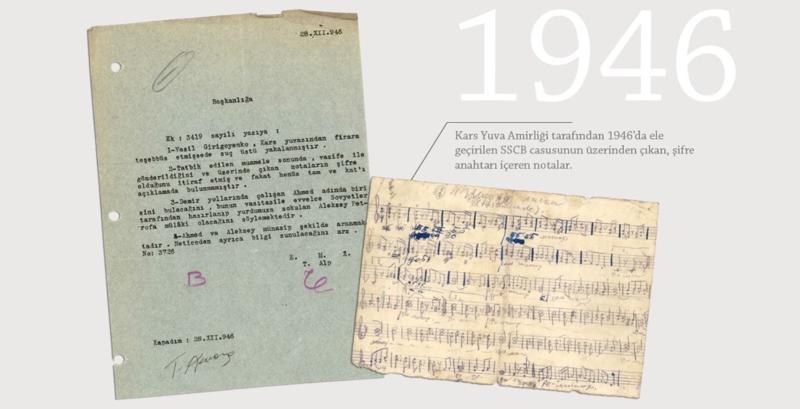 28.XII.946
Başkanlığa
Ek : 3419 sayılı yazıya :
1-Vasil Girigoyenko, Kars yuvasından firara
teşebbüs etmişsede suç üstü yakalanmıştır.
2-Tatbik edilen muamele sonunda, vazife ile
gönderildiğini ve üzerinde çıkan notaların şifre
olduğunu itiraf etmiş ve fakat henüz tam ve kat'i
açıklamada bulunmamıştır.
3-Demir yollarında çalışan Ahmed adında biri
sini bulacağını, bunun vasıtasile evvelce Sovyetler
tarafından hazırlanıp yurdumuza sokulan Aleksey Pet-
rofa mülâki olacağını söylemektedir.
4-Ahmed ve Aleksey münasip şekilde aranmak
tadır. Neticeden ayrıca bilgi sunulacağını arz.
No: 3726
E. M. X.
T. Alp
B
Kapadım : 28.XII.946
1946
Kars Yuva Amirliği tarafından 1946'da ele
geçirilen SSCB casusunun üzerinden çıkan, şifre
anahtarı içeren notalar.